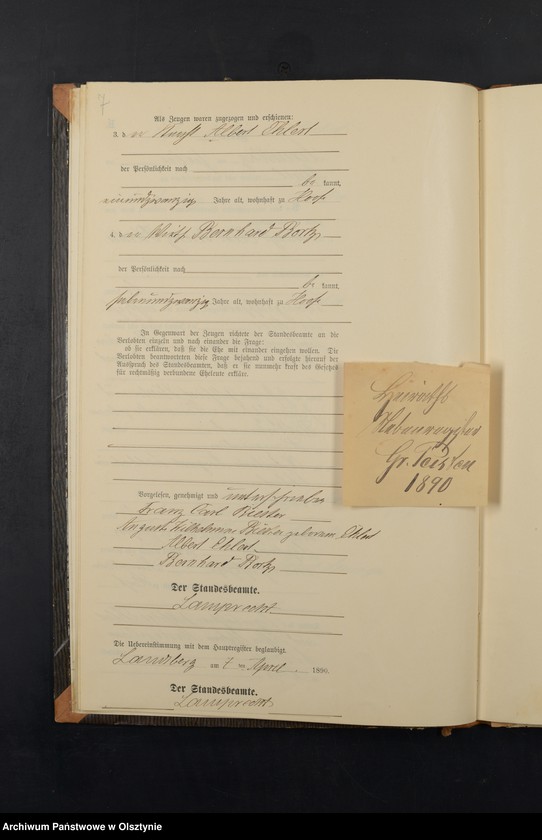 7
Als Zeugen waren zugezogen und erschienen:
3. d er Albert Ehlert
der Persönlichkeit nach
be kannt,
neunundzwanzig Jahre alt, wohnhaft zu Hoof
4. d er Wirth Bernhard Bortz
der Persönlichkeit nach
be kannt,
siebenundzwanzig Jahre alt, wohnhaft zu Hoof
In Gegenwart der Zeugen richtete der Standesbeamte an die
Verlobten einzeln und nach einander die Frage:
ob sie erklären, daß sie die Ehe mit einander eingehen wollen. Die
Verlobten beantworteten diese Frage bejahend und erfolgte hierauf der
Ausspruch des Standesbeamten, daß er sie nunmehr kraft des Gesetzes
für rechtmäßig verbundene Eheleute erkläre.
Vorgelesen, genehmigt und unterschrieben
Franz Carl
Auguste Wilhelmine geborene Ehlert
Albert Ehlert
Bernhard Bortz
Der Standesbeamte.
Lamprecht
Die Uebereinstimmung mit dem Hauptregister beglaubigt.
Landsberg am 7 ten April 1890.
Der Standesbeamte.
Lamprecht
Heiraths
Nebenregister
Gr. Peisten
1890
Archiwum Państwowe w Olsztynie